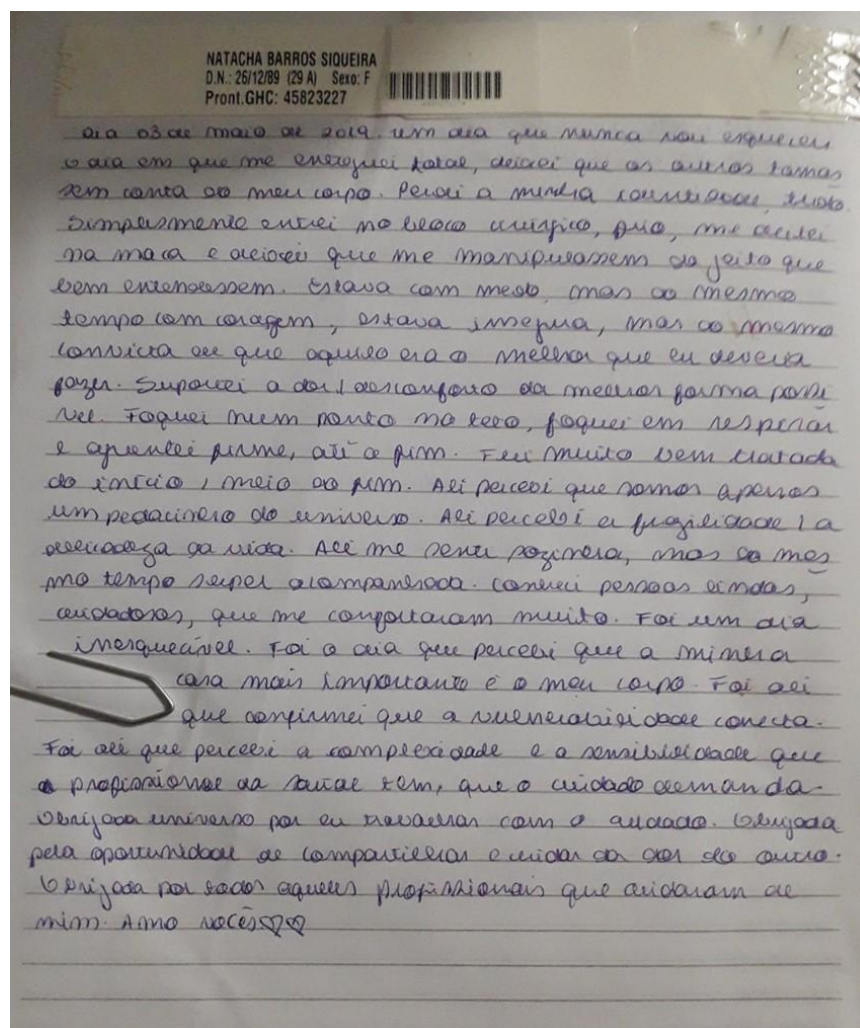 NATACHA BARROS SIQUEIRA
D.N.: 26/12/89 (29 A) Sexo: F
Pront.GHC: 45823227
Dia 03 de maio de 2019. Um dia que nunca vou esquecer
o dia em que me entreguei total, deixei que os outros tomas
sem conta do meu corpo. Perdi a minha identidade, tudo.
Simplesmente entrei no bloco cirúrgico, frio, me deitei
na maca e deixei que me manipulassem do jeito que
bem entendessem. Estava com medo, mas ao mesmo
tempo com coragem, estava insegura, mas ao mesmo
convicta de que aquilo era o melhor que eu deveria
fazer. Suportei a dor / desconforto da melhor forma possí
vel. Foquei num ponto no teto, foquei em respirar
e aguentei firme, até o fim. Fui muito bem tratada
do início, meio ao fim. Ali percebi que somos apenas
um pedacinho do universo. Ali percebi a fragilidade / a
delicadeza da vida. Ali me senti sozinha, mas ao mes
mo tempo super acompanhada. Conheci pessoas lindas,
cuidadosas, que me confortaram muito. Foi um dia
inesquecível. Foi o dia que percebi que a minha
casa mais importante é o meu corpo. Foi ali
que confirmei que a vulnerabilidade conecta.
Foi ali que percebi a complexidade e a sensibilidade que
o profissional da saúde tem, que o cuidado demanda.
Obrigada universo por eu trabalhar com o cuidado. Obrigada
pela oportunidade de compartilhar e cuidar da dor do outro.
Obrigada por todos aqueles profissionais que cuidaram de
mim. Amo vocês♡♡